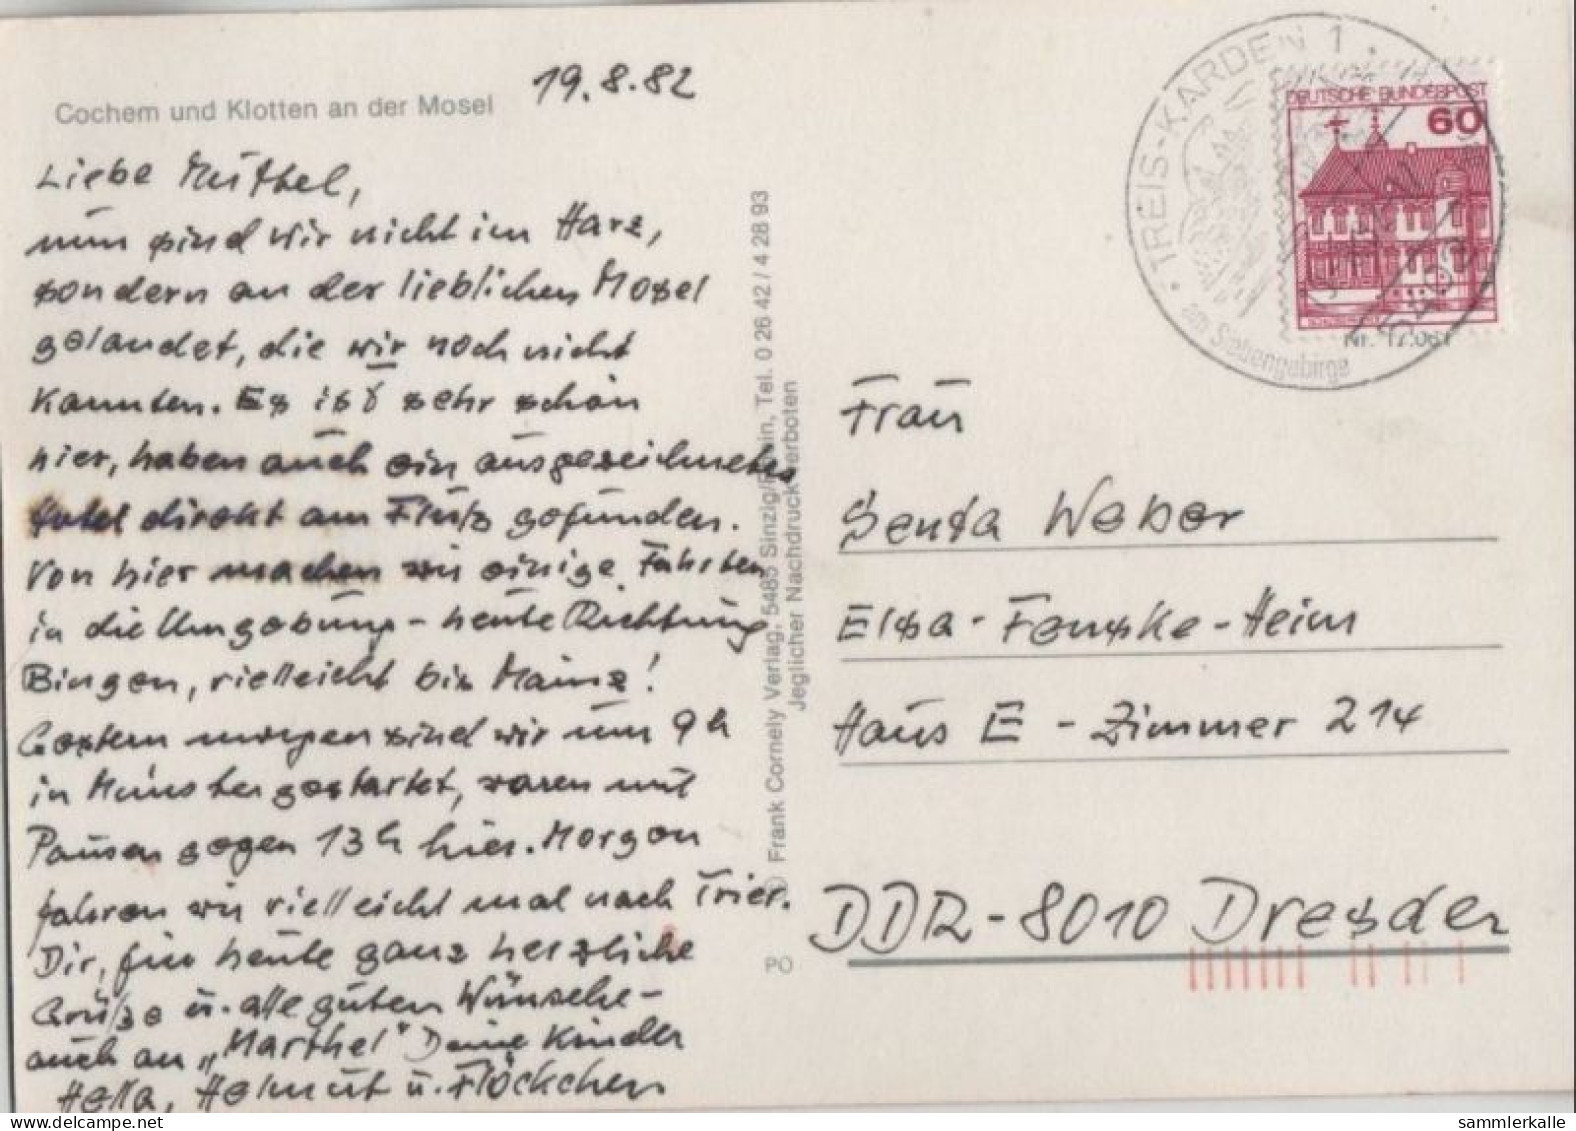 19.8.82
Cochem und Klotten an der Mosel
Liebe Muttel,
nun sind wir nicht im Harz,
sondern an der lieblichen Mosel
gelandet, die wir noch nicht
kannten. Es ist sehr schön
hier, haben auch ein ausgezeichnetes
Hotel direkt am Fluß gefunden.
Von hier machen wir einige Fahrten
in die Umgebung - heute Richtung
Bingen, vielleicht bis Mainz!
Gestern morgen sind wir um 9h
in Münster gestartet, waren mit
Pausen gegen 13h hier. Morgen
fahren wir vielleicht mal nach Trier.
Dir, für heute ganz herzliche
Grüße u. alle guten Wünsche -
auch an „Marthel" Deine Kinder
Hella, Helmut u. Flöckchen
© Frank Cornely Verlag, 5485 Sinzig/Rhein, Tel. 0 26 42 / 4 28 93
Jeglicher Nachdruck verboten
PO
TREIS-KARDEN 1
am Siebengebirge
DEUTSCHE BUNDESPOST
60
Nr. 17.061
Frau
Senta Weber
Elsa-Fenske-Heim
Haus E - Zimmer 214
DDR-8010 Dresden
sammlerkalle